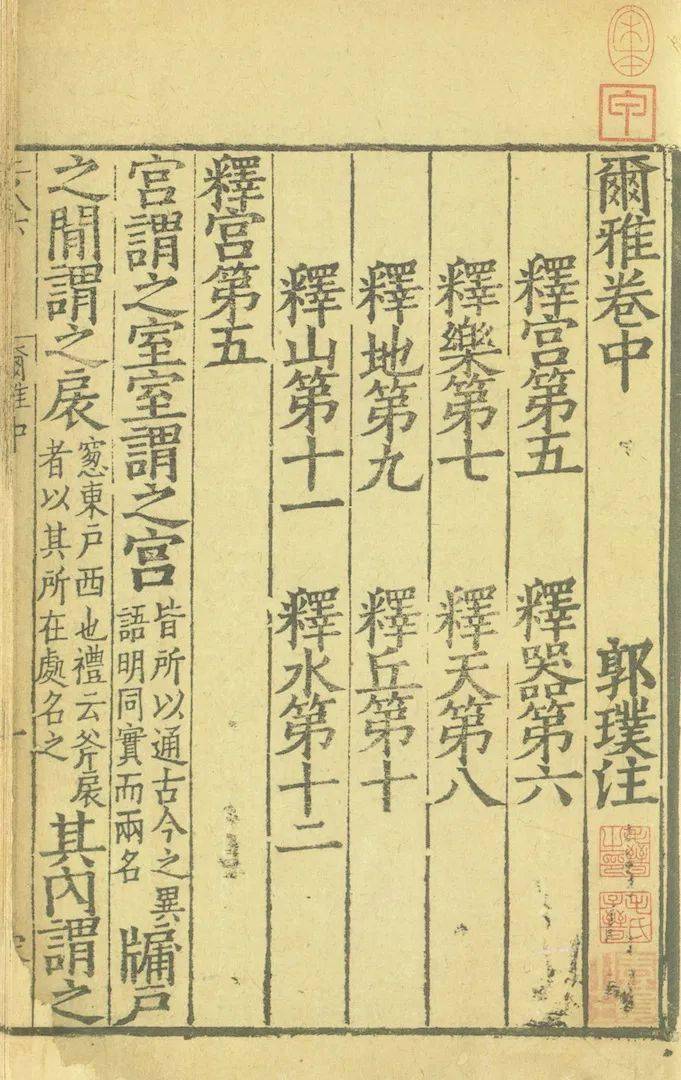 爾雅卷中 郭璞注
釋宫第五 釋器第六
釋樂第七 釋天第八
釋地第九 釋丘第十
釋山第十一 釋水第十二
釋宫第五
宫謂之室室謂之宫 皆所以通古今之異語明同實而兩名 牖戸
之閒謂之扆 窻東戸西也禮云斧扆者以其所在處名之 其内謂之
爾雅中